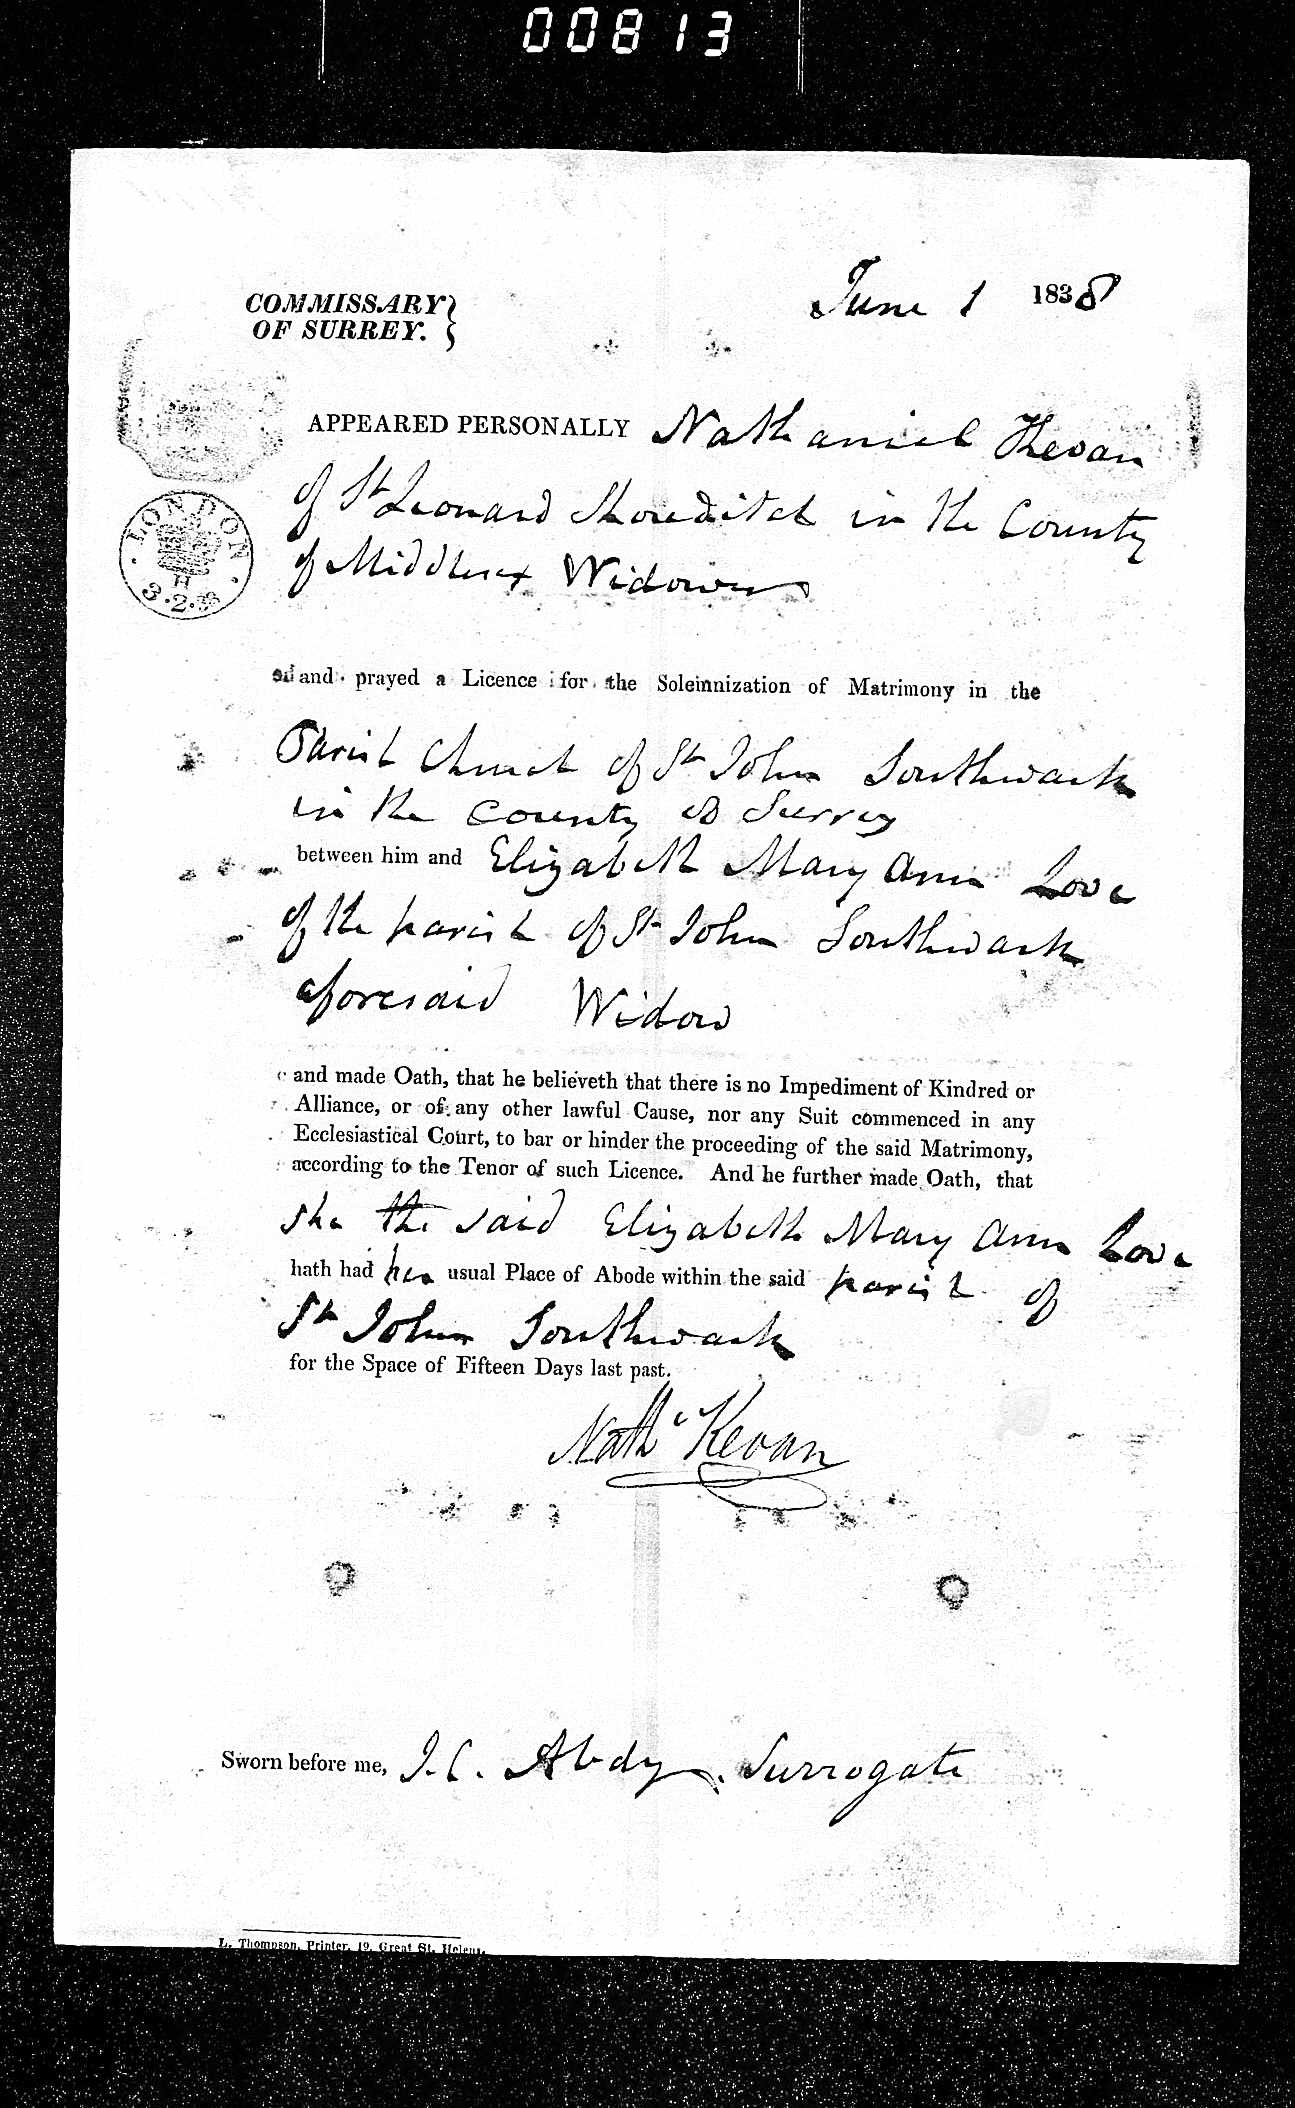 00813
COMMISSARY
OF SURREY.
June 1 1838
APPEARED PERSONALLY Nathaniel Kevan
of St Leonard Shoreditch in the County
of Middlesex Widower
LONDON
H
3.2.38
and prayed a Licence for the Solemnization of Matrimony in the
Parish Church of St John Southwark
in the County of Surrey
between him and Elizabeth Mary Ann Love
of the parish of St John Southwark
aforesaid Widow
and made Oath, that he believeth that there is no Impediment of Kindred or
Alliance, or of any other lawful Cause, nor any Suit commenced in any
Ecclesiastical Court, to bar or hinder the proceeding of the said Matrimony,
according to the Tenor of such Licence. And he further made Oath, that
she the said Elizabeth Mary Ann Love
hath had her usual Place of Abode within the said parish of
St John Southwark
for the Space of Fifteen Days last past.
Nathl Kevan
Sworn before me, J. C. Abdy. Surrogate
L. Thompson, Printer, 19, Great St. Helens.